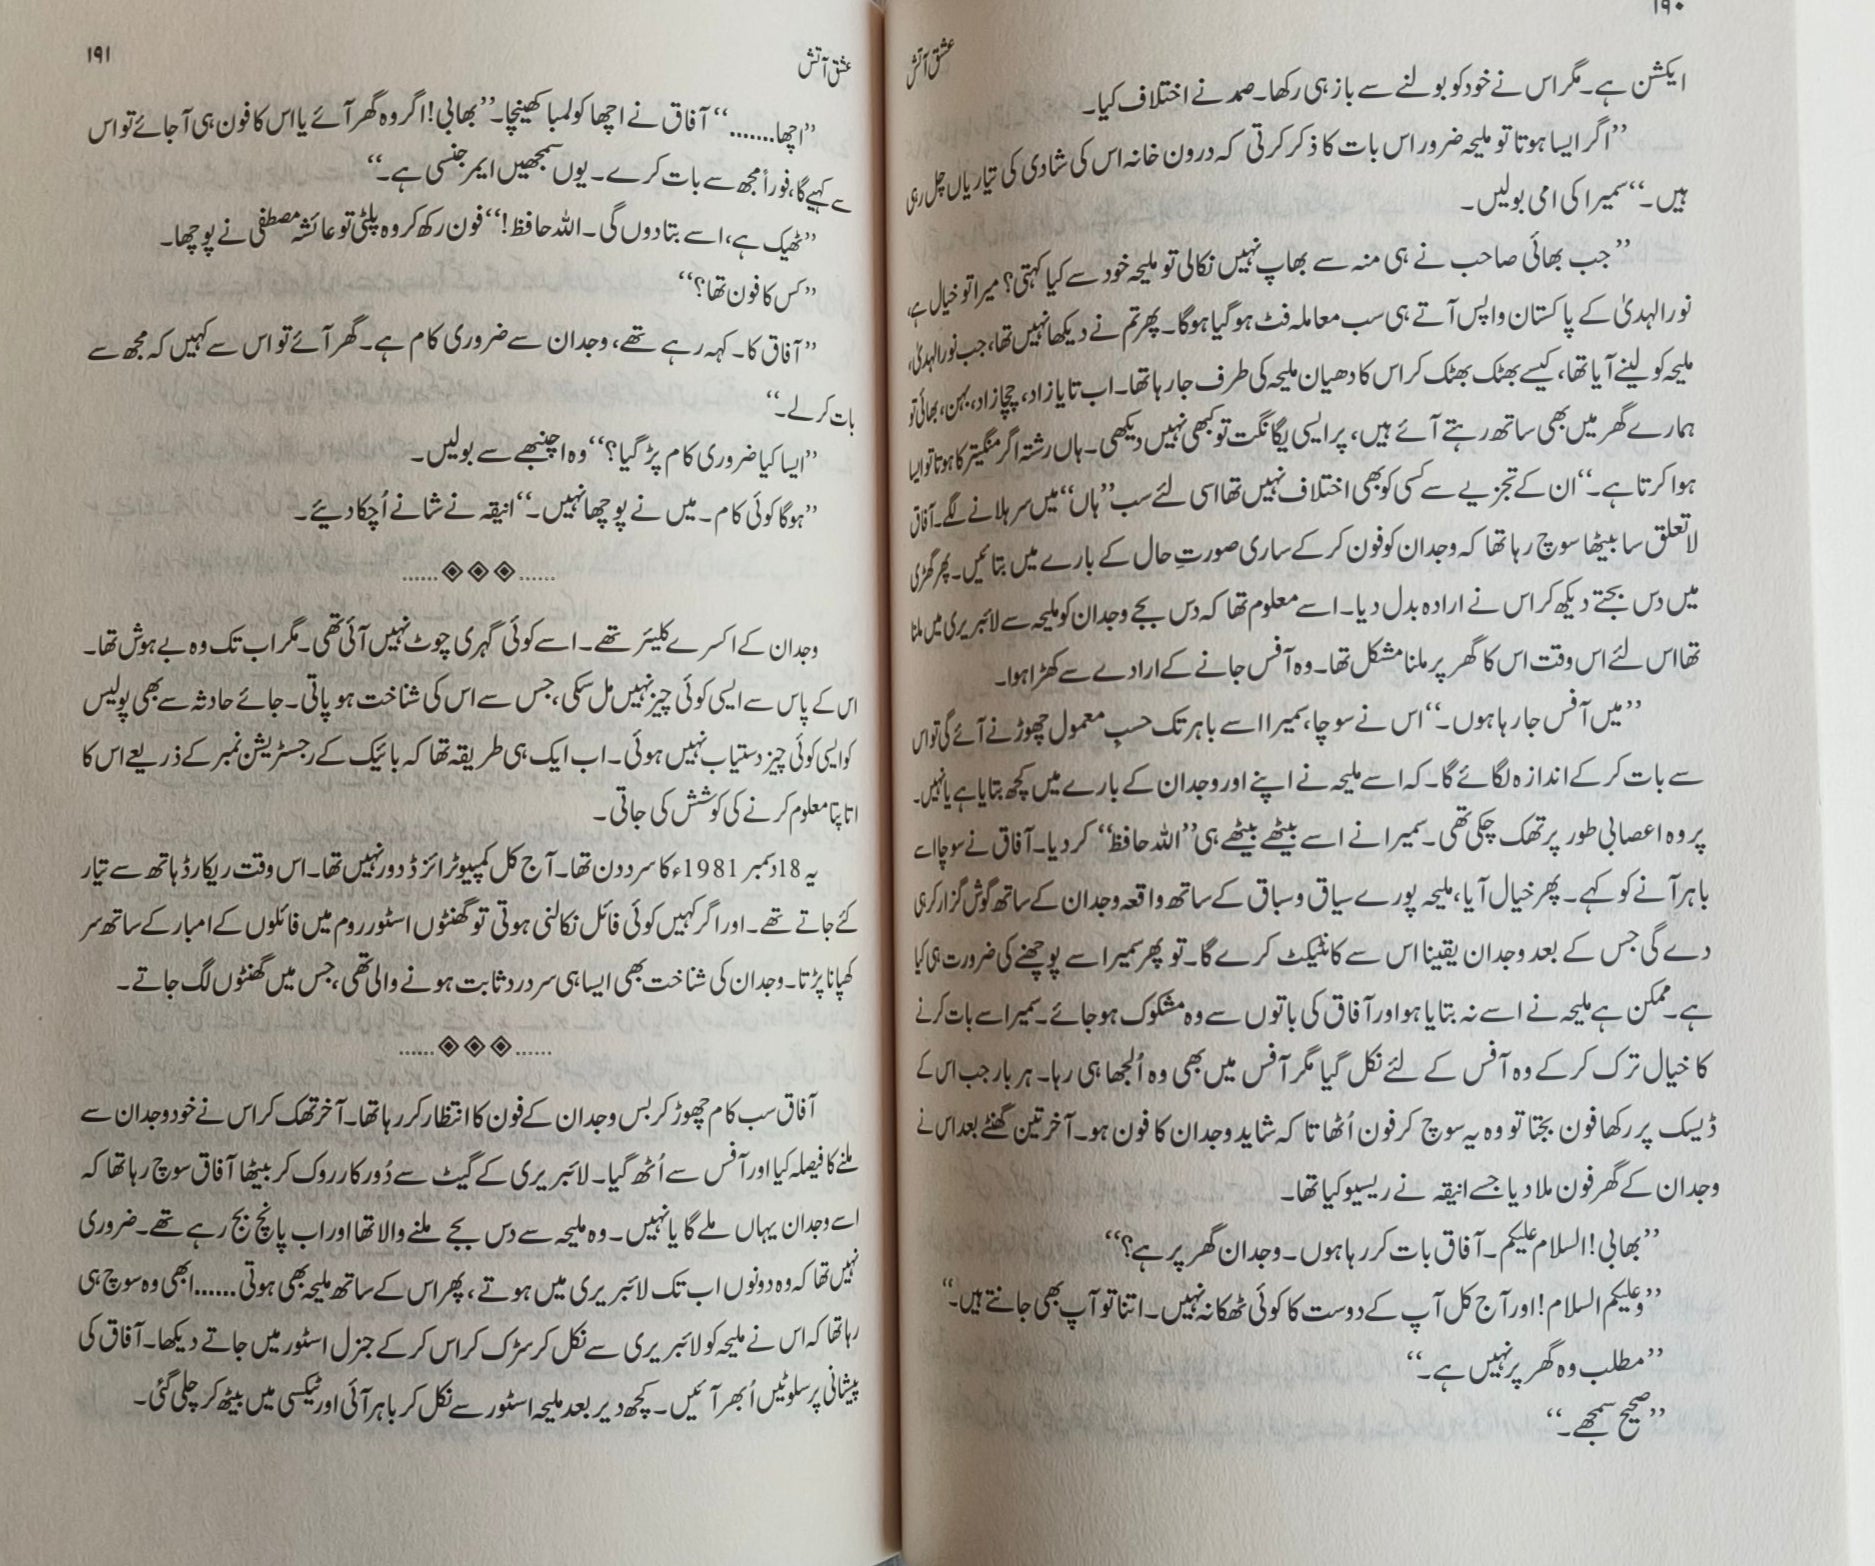 ۱۹۰
عشق آتش
ایکشن ہے۔ مگر اس نے خود کو بولنے سے باز ہی رکھا۔ صمد نے اختلاف کیا۔
’’اگر ایسا ہوتا تو ملیحہ ضرور اس بات کا ذکر کرتی کہ درون خانہ اس کی شادی کی تیاریاں چل رہی
ہیں۔‘‘ سمیرا کی امی بولیں۔
’’جب بھائی صاحب نے ہی منہ سے بھاپ نہیں نکالی تو ملیحہ خود سے کیا کہتی؟ میرا تو خیال ہے،
نورالہدیٰ کے پاکستان واپس آتے ہی سب معاملہ فٹ ہو گیا ہوگا۔ پھر تم نے دیکھا نہیں تھا، جب نورالہدیٰ،
ملیحہ کو لینے آیا تھا، کیسے بھٹک بھٹک کر اس کا دھیان ملیحہ کی طرف جا رہا تھا۔ اب تایا زاد، چچا زاد، بہن، بھائی تو
ہمارے گھر میں بھی ساتھ رہتے آئے ہیں، پر ایسی یگانگت تو کبھی نہیں دیکھی۔ ہاں رشتہ اگر منگیتر کا ہوتا تو ایسا
ہوا کرتا ہے۔‘‘ ان کے تجزیے سے کسی کو بھی اختلاف نہیں تھا اسی لئے سب ’’ہاں‘‘ میں سر ہلانے لگے۔ آفاق
لاتعلق سا بیٹھا سوچ رہا تھا کہ وجدان کو فون کر کے ساری صورتِ حال کے بارے میں بتائیں۔ پھر گھڑی
میں دس بجتے دیکھ کر اس نے ارادہ بدل دیا۔ اسے معلوم تھا کہ دس بجے وجدان کو ملیحہ سے لائبریری میں ملنا
تھا اس لئے اس وقت اس کا گھر پر ملنا مشکل تھا۔ وہ آفس جانے کے ارادے سے کھڑا ہوا۔
’’میں آفس جا رہا ہوں۔‘‘ اس نے سوچا، سمیرا اسے باہر تک حسبِ معمول چھوڑنے آئے گی تو اس
سے بات کر کے اندازہ لگائے گا۔ کہ اسے ملیحہ نے اپنے اور وجدان کے بارے میں کچھ بتایا ہے یا نہیں۔
پر وہ اعصابی طور پر تھک چکی تھی۔ سمیرا نے اسے بیٹھے بیٹھے ہی ’’اللہ حافظ‘‘ کر دیا۔ آفاق نے سوچا اسے
باہر آنے کو کہے۔ پھر خیال آیا، ملیحہ پورے سیاق و سباق کے ساتھ واقعہ وجدان کے ساتھ گوش گزار کر ہی
دے گی جس کے بعد وجدان یقینا اس سے کانٹیکٹ کرے گا۔ تو پھر سمیرا سے پوچھنے کی ضرورت ہی کیا
ہے۔ ممکن ہے ملیحہ نے اسے نہ بتایا ہو اور آفاق کی باتوں سے وہ مشکوک ہو جائے۔ سمیرا سے بات کرنے
کا خیال ترک کر کے وہ آفس کے لئے نکل گیا مگر آفس میں بھی وہ اُلجھا ہی رہا۔ ہر بار جب اس کے
ڈیسک پر رکھا فون بجتا تو وہ یہ سوچ کر فون اُٹھاتا کہ شاید وجدان کا فون ہو۔ آخر تین گھنٹے بعد اس نے
وجدان کے گھر فون ملا دیا جسے انیقہ نے ریسیو کیا تھا۔
’’بھابی! السلام علیکم۔ آفاق بات کر رہا ہوں۔ وجدان گھر پر ہے؟‘‘
’’وعلیکم السلام! اور آج کل آپ کے دوست کا کوئی ٹھکانہ نہیں۔ اتنا تو آپ بھی جانتے ہیں۔‘‘
’’مطلب وہ گھر پر نہیں ہے۔‘‘
’’صحیح سمجھے۔‘‘
عشق آتش
۱۹۱
’’اچھا.......‘‘ آفاق نے اچھا کو لمبا کھینچا۔ ’’بھابی! اگر وہ گھر آئے یا اس کا فون ہی آ جائے تو اس
سے کہیے گا، فوراً مجھ سے بات کرے۔ یوں سمجھیں ایمرجنسی ہے۔‘‘
’’ٹھیک ہے، اسے بتا دوں گی۔ اللہ حافظ!‘‘ فون رکھ کر وہ پلٹی تو عائشہ مصطفی نے پوچھا۔
’’کس کا فون تھا؟‘‘
’’آفاق کا۔ کہہ رہے تھے، وجدان سے ضروری کام ہے۔ گھر آئے تو اس سے کہیں کہ مجھ سے
بات کر لے۔‘‘
’’ایسا کیا ضروری کام پڑ گیا؟‘‘ وہ اچنبھے سے بولیں۔
’’ہوگا کوئی کام۔ میں نے پوچھا نہیں۔‘‘ انیقہ نے شانے اُچکا دیئے۔
......◈◈◈......
وجدان کے ایکسرے کلیئر تھے۔ اسے کوئی گہری چوٹ نہیں آئی تھی۔ مگر اب تک وہ بے ہوش تھا۔
اس کے پاس سے ایسی کوئی چیز نہیں مل سکی، جس سے اس کی شناخت ہو پاتی۔ جائے حادثہ سے بھی پولیس
کو ایسی کوئی چیز دستیاب نہیں ہوئی۔ اب ایک ہی طریقہ تھا کہ بائیک کے رجسٹریشن نمبر کے ذریعے اس کا
اتا پتا معلوم کرنے کی کوشش کی جاتی۔
یہ 18 دسمبر 1981ء کا سرد دن تھا۔ آج کل کمپیوٹرائزڈ دور نہیں تھا۔ اس وقت ریکارڈ ہاتھ سے تیار
کئے جاتے تھے۔ اور اگر کہیں کوئی فائل نکالنی ہوتی تو گھنٹوں اسٹور روم میں فائلوں کے امبار کے ساتھ سر
کھپانا پڑتا۔ وجدان کی شناخت بھی ایسا ہی سر درد ثابت ہونے والی تھی، جس میں گھنٹوں لگ جاتے۔
......◈◈◈......
آفاق سب کام چھوڑ کر بس وجدان کے فون کا انتظار کر رہا تھا۔ آخر تھک کر اس نے خود وجدان سے
ملنے کا فیصلہ کیا اور آفس سے اُٹھ گیا۔ لائبریری کے گیٹ سے دُور کار روک کر بیٹھا آفاق سوچ رہا تھا کہ
اسے وجدان یہاں ملے گا یا نہیں۔ وہ ملیحہ سے دس بجے ملنے والا تھا اور اب پانچ بج رہے تھے۔ ضروری
نہیں تھا کہ وہ دونوں اب تک لائبریری میں ہوتے، پھر اس کے ساتھ ملیحہ بھی ہوتی...... ابھی وہ سوچ ہی
رہا تھا کہ اس نے ملیحہ کو لائبریری سے نکل کر سڑک کراس کر کے جنرل اسٹور میں جاتے دیکھا۔ آفاق کی
پیشانی پر سلوٹیں اُبھر آئیں۔ کچھ دیر بعد ملیحہ اسٹور سے نکل کر باہر آئی اور ٹیکسی میں بیٹھ کر چلی گئی۔